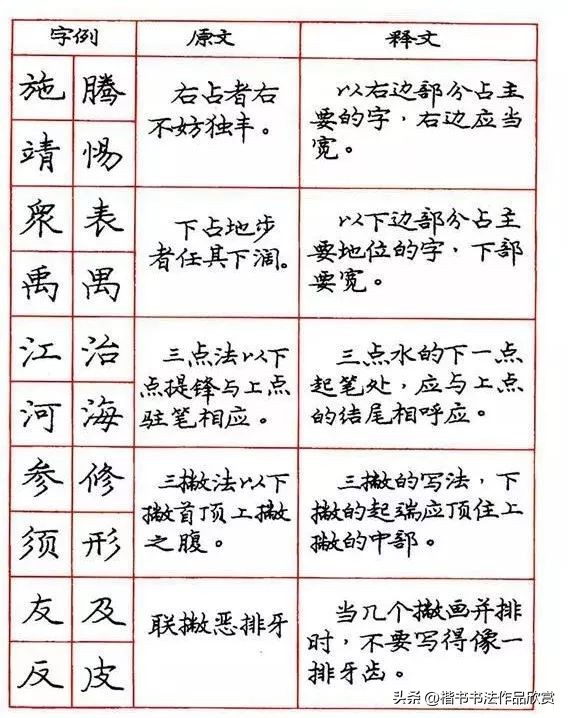 字例 原文 释文
施 腾 右占者右 以右边部分占主
不妨独丰。 要的字，右边应当
靖 惕 宽。
众 表 下占地步 以下边部分占主
者任其下阔。 要地位的字，下部
禹 禺 要宽。
江 治 三点法以下 三点水的下一点
点提锋与上点 起笔处，应与上点
河 海 驻笔相应。 的结尾相呼应。
参 修 三撇法以下 三撇的写法，下
撇首顶上撇 撇的起端应顶住上
须 形 之腹。 撇的中部。
友 及 联撇恶排牙 当几个撇画并排
时，不要写得像一
反 皮 排牙齿。
头条 @楷书书法作品欣赏